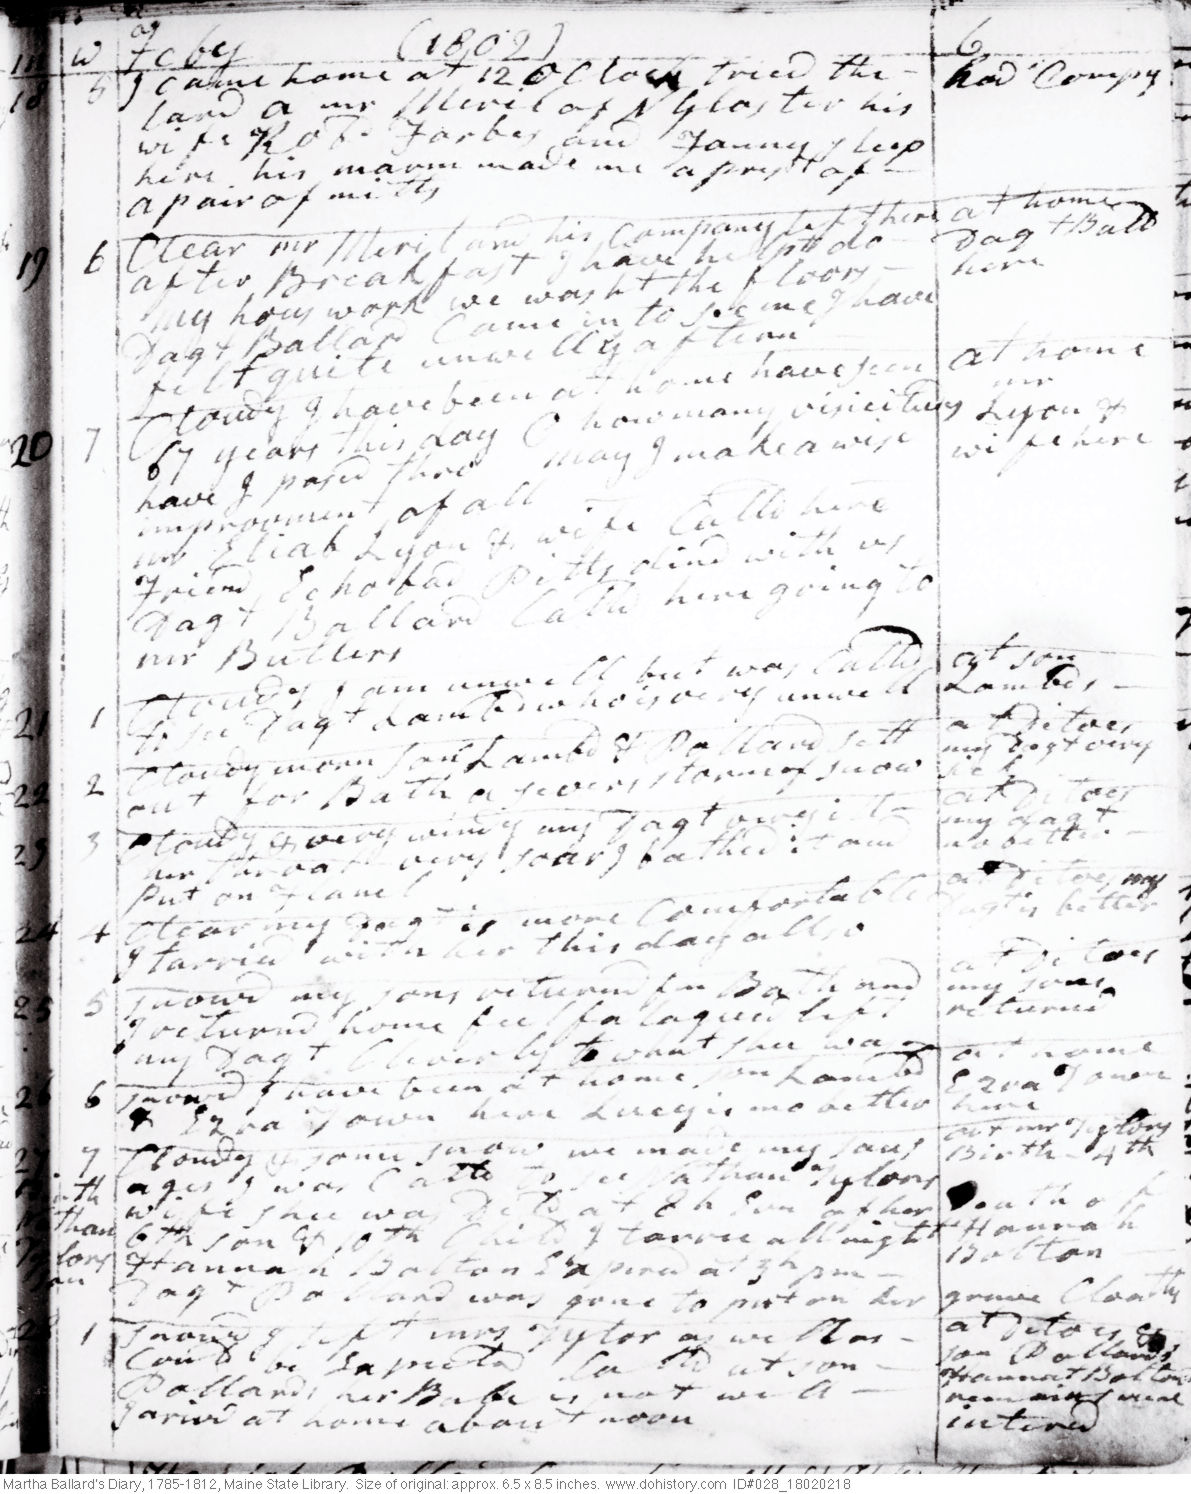 m w Feby (1802) 6
18 5 I came home at 12 O Clock tried the had Compy
lard a mr Meril of N Gloster his
wife Rob Forbes and Fanny sleep
here his marm made me a prest of
a pair of mitts
19 6 Clear mr Meril and his Company left here at home
after Breakfast I have helpt do Dagt Ball
my houswork we washt the floors here
Dagt Ballard Came in to see me I have
felt quite unwell by aftern
20 7 Cloudy I have been at home have seen at home
67 years this day O how many visicitudes mr Lyon &
have I passd thro may I make a wise wife here
improovment of all
mr Eliab Lyon & wife Calld here
Friend Echobad Pitts dind with us
Dagt Ballard Calld here going to
mr Butlers
21 1 Cloudy I am unwell but was Calld at son
to see Dagt Lambd who is very unwell Lambds
22 2 Cloudy morn son Lambd & Pollard sett at Ditoes
out for Bath a severe storm of snow my Dagt very
sick
23 3 Cloudy & very windy my Dagt very ill at Ditoes
her throat very soar I bathed it and my Dagt
Put on Flanel no better
24 4 Clear my Dagt is more Comfortable at Ditoes my
I tarried with her this day allso Dagt is better
25 5 snowd my sons returnd fm Bath and at Ditoes
I returnd home feel fatagued left my sons
my Dagt Cleverly to what shee was returned
26 6 snowd I have been at home son Lambd at home
& Ezra Town here Lucy is no better Ezra Town
here
27 7 Cloudy & some snow we made my saus at mr Tylors
ages I was Calld to see Nathan Tylors Birth 4th
wife shee was Dld at 8 h Evn of her
6th son & 10th Child I tarried all night Death of
Hannah Bolton Expired at 3h pm Hannah
Dagt Pollard was gone to put on her Bolton
grave Cloaths
than
lors
son
28 1 snowd I left mrs Tylor as well as at Ditoes &
Could be Expected Calld at son son Pollards
Pollards her Babe is not well Hannah Boltons
I arivd at home about noon remains were
interd
Martha Ballard's Diary, 1785-1812, Maine State Library. Size of original: approx. 6.5 x 8.5 inches. www.dohistory.com ID#028_18020218